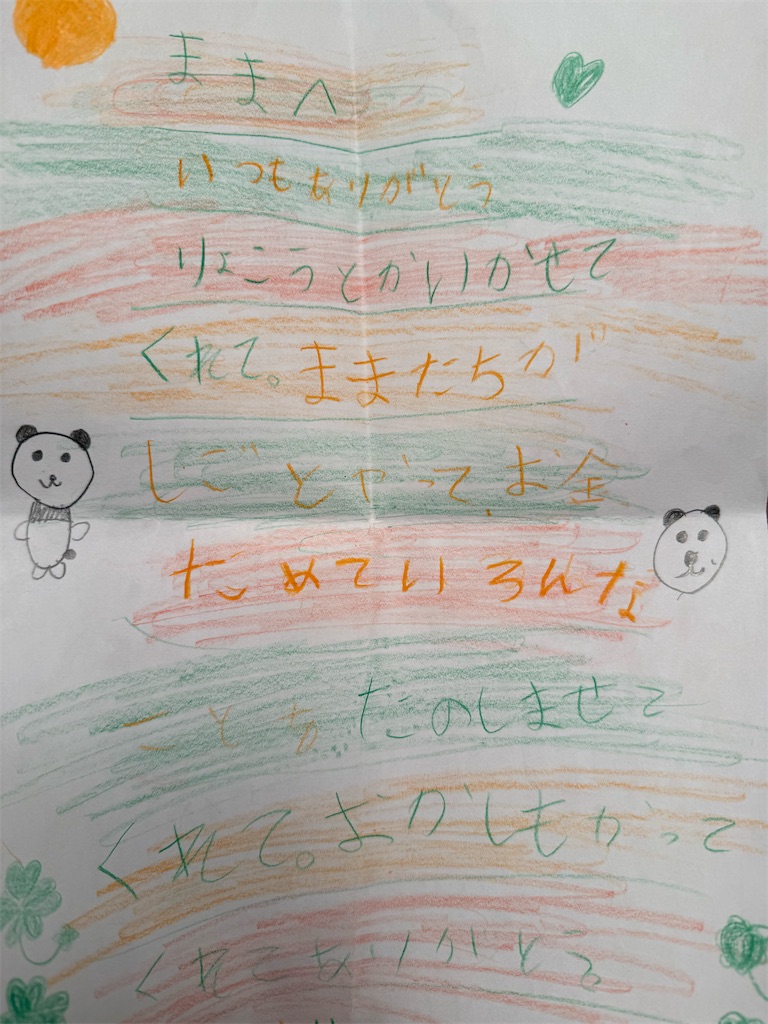 ままへ
いつもありがとう
りょこうとかいかせて
くれて。ままたちが
しごとやって、お金
ためていろんな
ことを たのしませて
くれて。おかしもかって
くれてありがとう